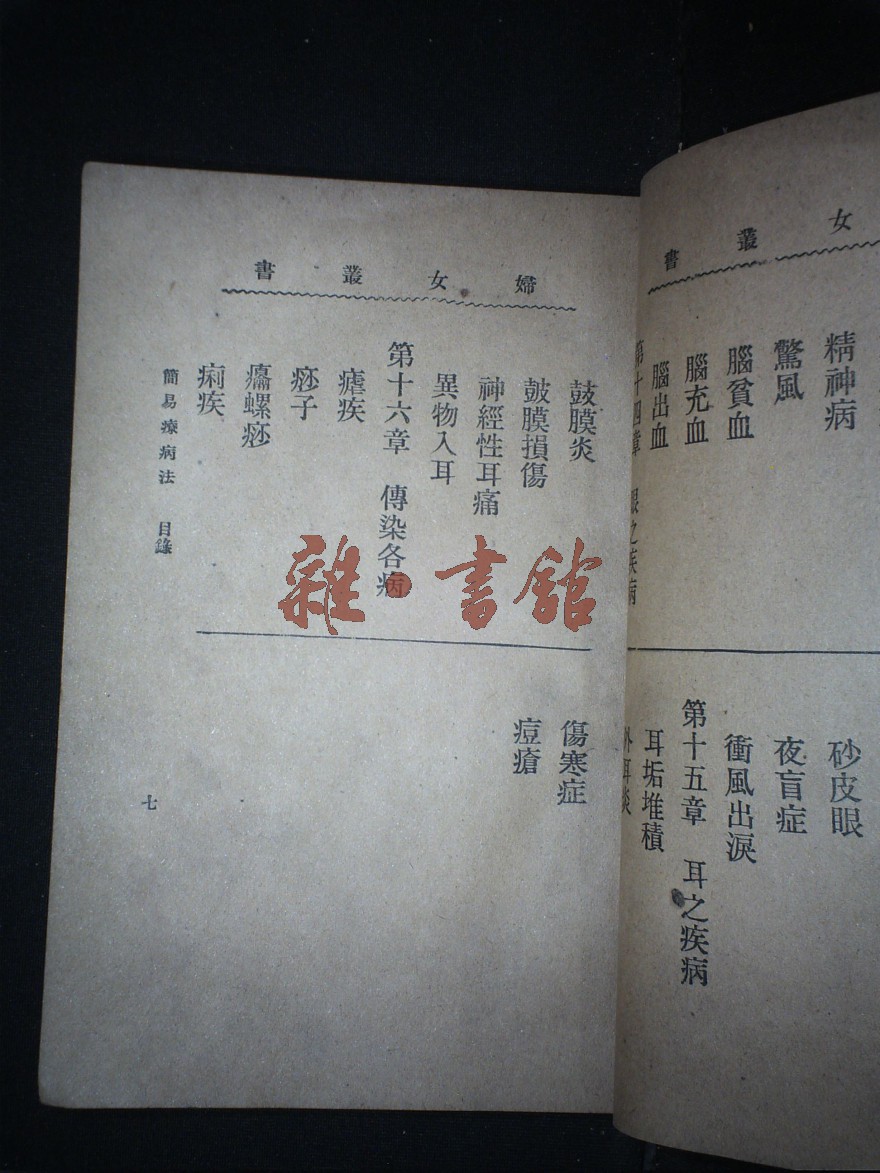 女叢書
精神病
驚風
腦貧血
腦充血
腦出血
第十四章 眼之疾病
砂皮眼
夜盲症
衝風出淚
第十五章 耳之疾病
耳垢堆積
外耳炎
婦女叢書
鼓膜炎
鼓膜損傷
神經性耳痛
異物入耳
第十六章 傳染各病
瘧疾
痧子
癟螺痧
痢疾
傷寒症
痘瘡
簡易療病法 目錄
七
雜·書館